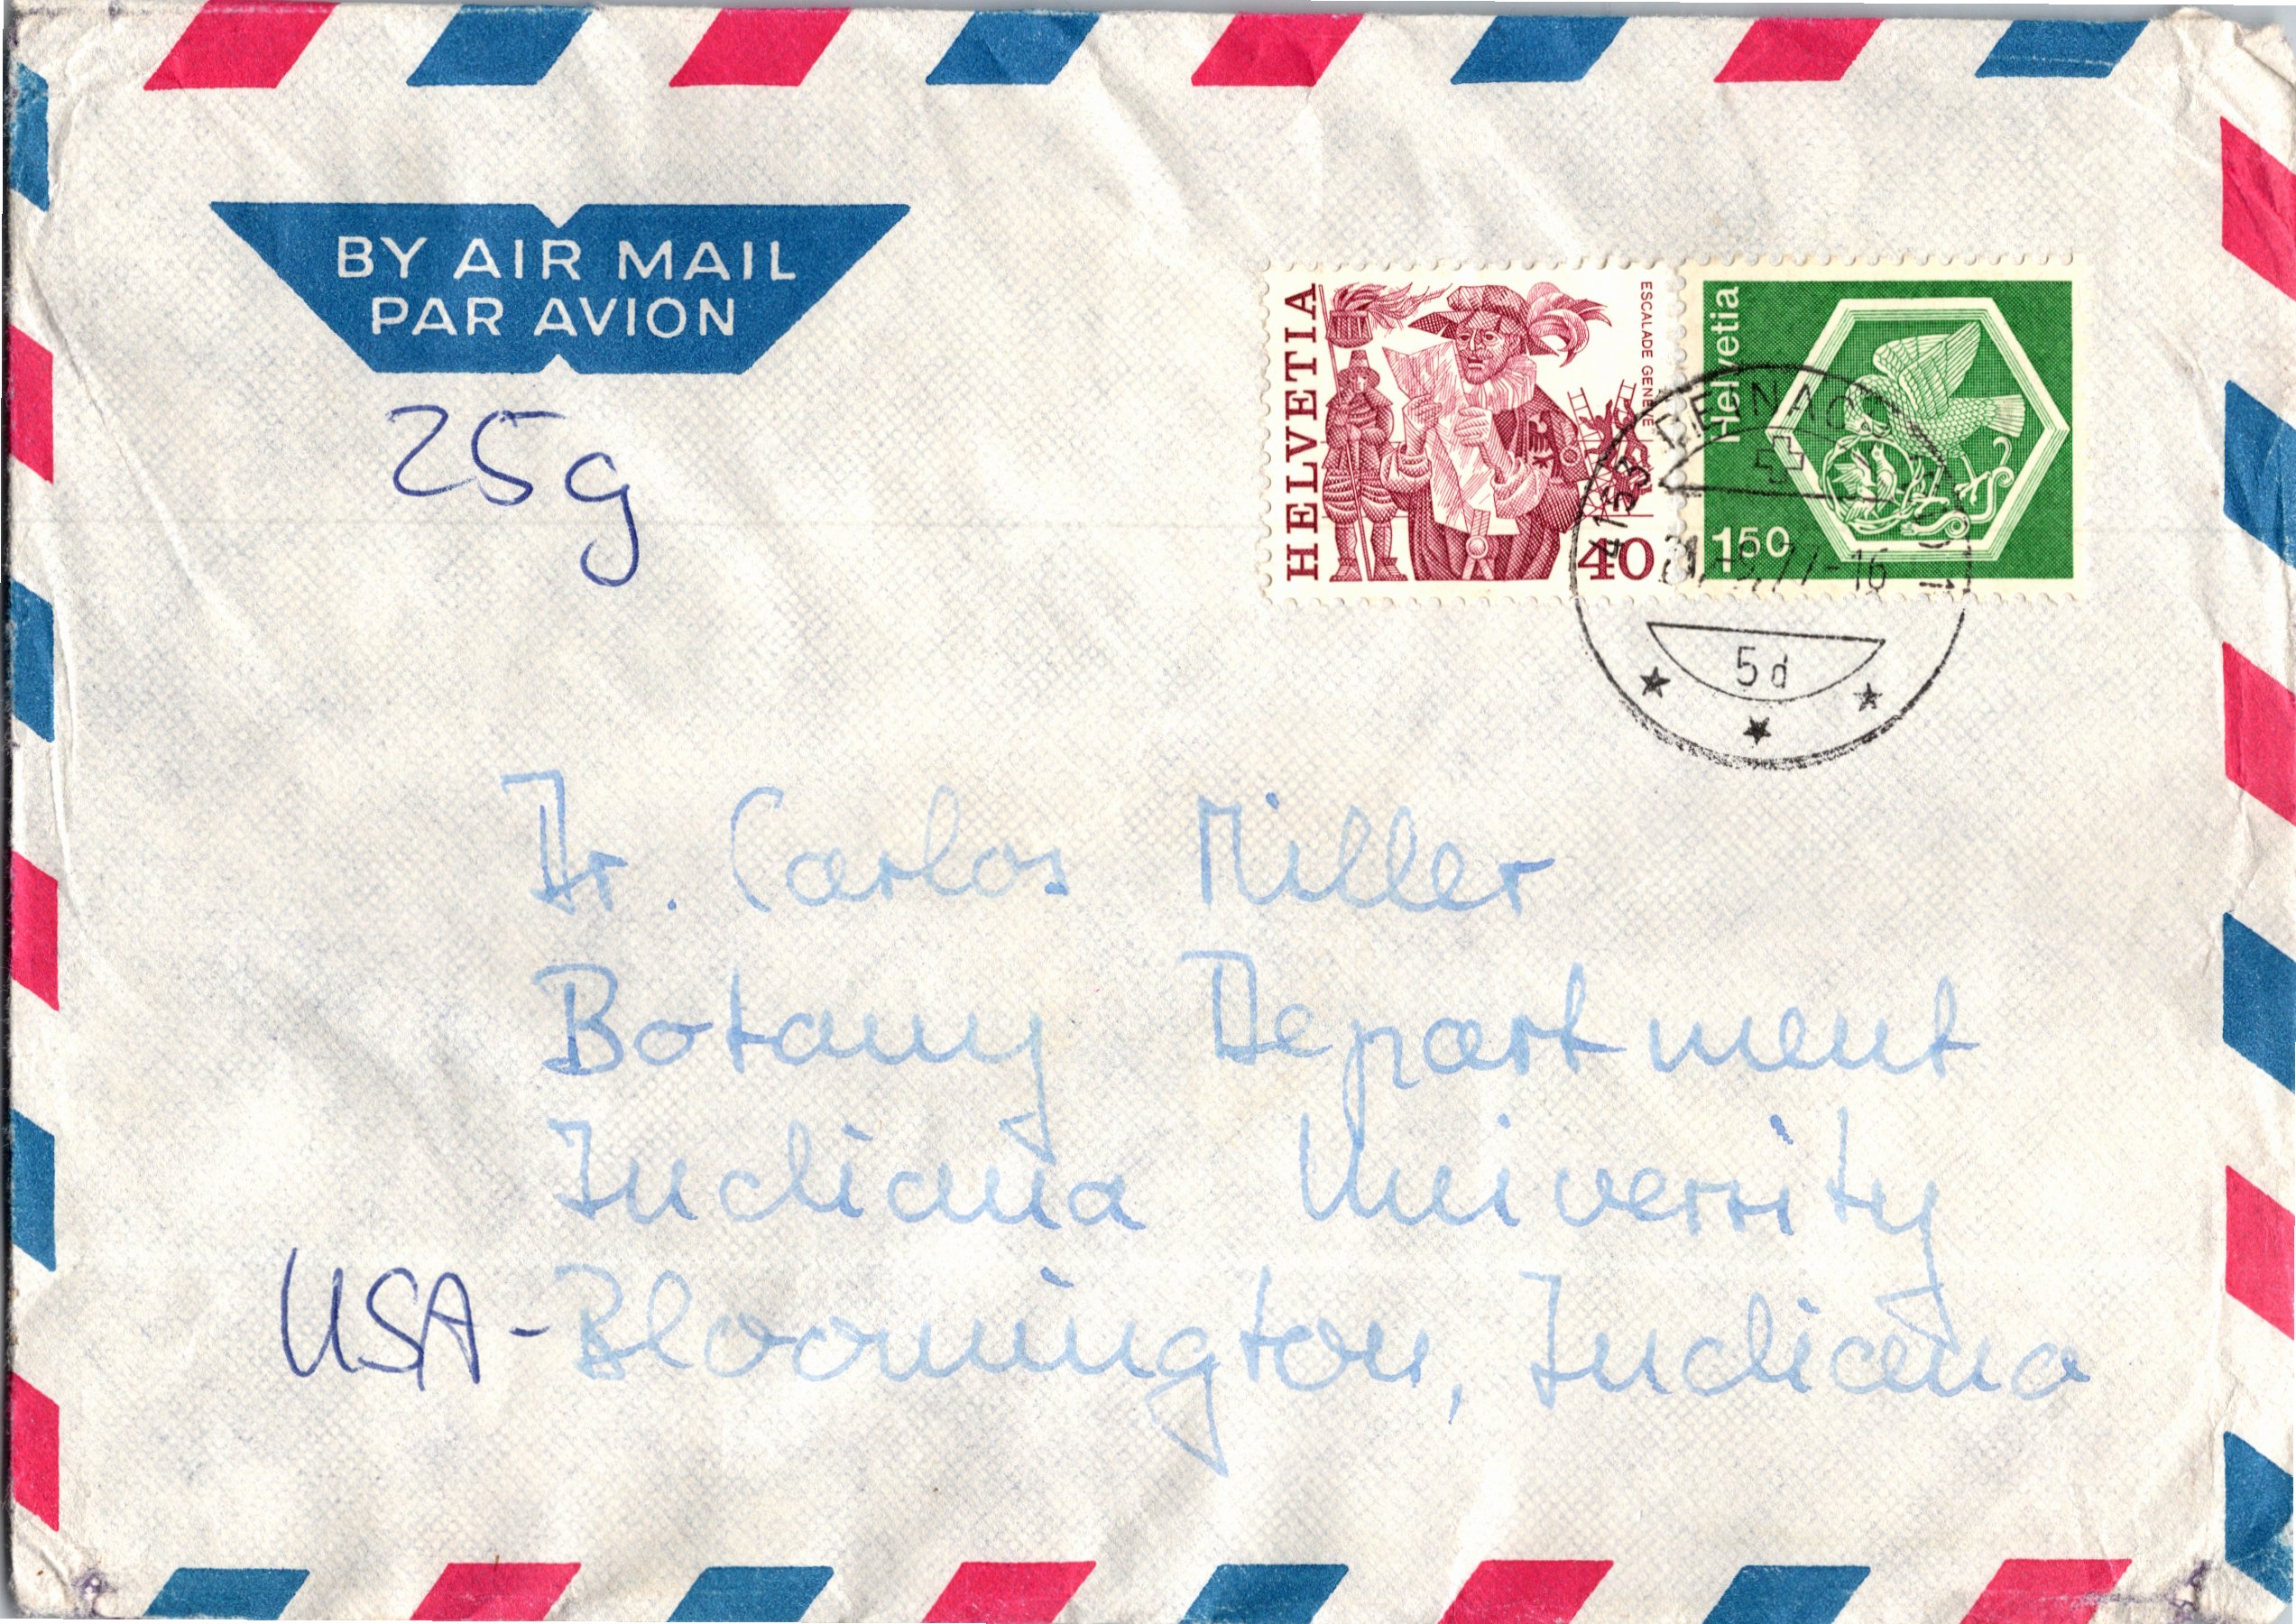 BY AIR MAIL
PAR AVION
25g
HELVETIA
ESCALADE GENÈVE
40
Helvetia
150
4153 REINACH
77-16
5d
Dr. Carlos Miller
Botany Department
Indiana University
USA - Bloomington, Indiana